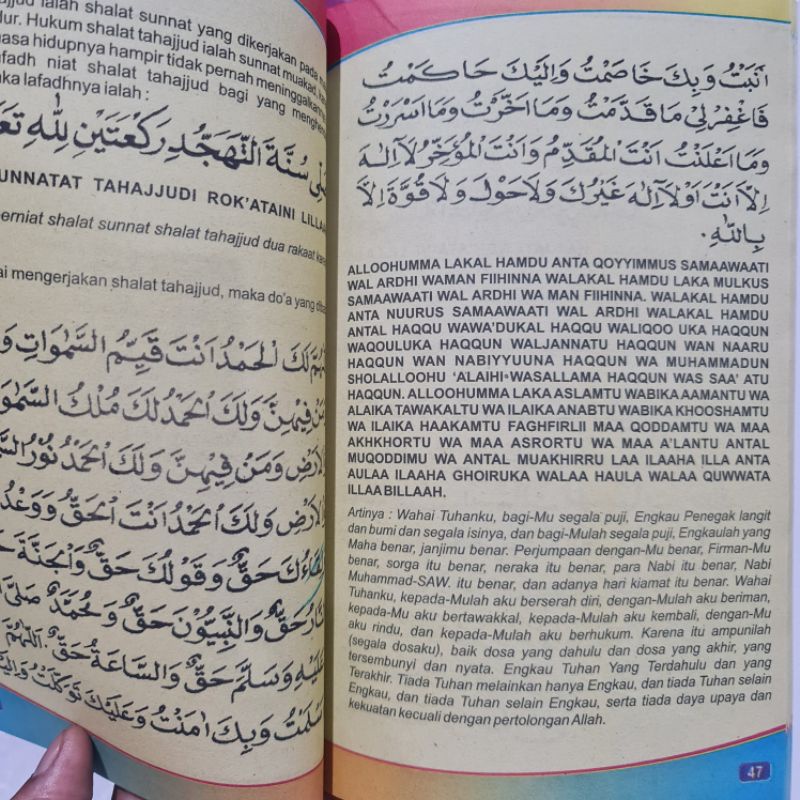 ialah shalat sunnat yang dikerjakan pada
Hukum shalat tahajjud ialah sunnat muakad,
hidupnya hampir tidak pernah meninggalkannya
niat shalat tahajjud bagi yang
lafadhnya ialah :
سُنَّةَ التَّهَجُّدِ رَكْعَتَيْنِ لِلّٰهِ
TAHAJJUDI ROK'ATAINI
shalat sunnat shalat tahajjud dua rakaat
mengerjakan shalat tahajjud, maka do'a yang
لَكَ الْحَمْدُ اَنْتَ قَيِّمُ السَّمٰوَاتِ
فِيْهِنَّ وَلَكَ الْحَمْدُ لَكَ مُلْكُ
وَمَنْ فِيْهِنَّ وَلَكَ الْحَمْدُ نُوْرُ
وَلَكَ الْحَمْدُ اَنْتَ الْحَقُّ وَوَعْدُ
حَقٌّ وَقَوْلُكَ حَقٌّ وَالْجَنَّةُ
حَقٌّ وَالنَّبِيُّوْنَ حَقٌّ وَمُحَمَّدٌ
وَسَلَّمَ حَقٌّ وَالسَّاعَةُ حَقٌّ. اَللّٰهُمَّ
وَبِكَ اٰمَنْتُ وَعَلَيْكَ تَوَكَّلْتُ
اَنَبْتُ وَبِكَ خَاصَمْتُ وَاِلَيْكَ حَاكَمْتُ
فَاغْفِرْلِيْ مَا قَدَّمْتُ وَمَا اَخَّرْتُ وَمَا اَسْرَرْتُ
وَمَا اَعْلَنْتُ اَنْتَ الْمُقَدِّمُ وَاَنْتَ الْمُؤَخِّرُ لَا اِلٰهَ
اِلَّا اَنْتَ اَوْلَا اِلٰهَ غَيْرُكَ وَلَا حَوْلَ وَلَا قُوَّةَ اِلَّا
بِاللّٰهِ.
ALLOOHUMMA LAKAL HAMDU ANTA QOYYIMMUS SAMAAWAATI
WAL ARDHI WAMAN FIIHINNA WALAKAL HAMDU LAKA MULKUS
SAMAAWAATI WAL ARDHI WA MAN FIIHINNA. WALAKAL HAMDU
ANTA NUURUS SAMAAWAATI WAL ARDHI WALAKAL HAMDU
ANTAL HAQQU WAWA'DUKAL HAQQU WALIQOO UKA HAQQUN
WAQOULUKA HAQQUN WALJANNATU HAQQUN WAN NAARU
HAQQUN WAN NABIYYUUNA HAQQUN WA MUHAMMADUN
SHOLALLOOHU 'ALAIHI WASALLAMA HAQQUN WAS SAA' ATU
HAQQUN. ALLOOHUMMA LAKA ASLAMTU WABIKA AAMANTU WA
ALAIKA TAWAKALTU WA ILAIKA ANABTU WABIKA KHOOSHAMTU
WA ILAIKA HAAKAMTU FAGHFIRLII MAA QODDAMTU WA MAA
AKHKHORTU WA MAA ASRORTU WA MAA A'LANTU ANTAL
MUQODDIMU WA ANTAL MUAKHIRRU LAA ILAAHA ILLA ANTA
AULAA ILAAHA GHOIRUKA WALAA HAULA WALAA QUWWATA
ILLAA BILLAAH.
Artinya : Wahai Tuhanku, bagi-Mu segala puji, Engkau Penegak langit
dan bumi dan segala isinya, dan bagi-Mulah segala puji, Engkaulah yang
Maha benar, janjimu benar. Perjumpaan dengan-Mu benar, Firman-Mu
benar, sorga itu benar, neraka itu benar, para Nabi itu benar, Nabi
Muhammad-SAW. itu benar, dan adanya hari kiamat itu benar. Wahai
Tuhanku, kepada-Mulah aku berserah diri, dengan-Mulah aku beriman,
kepada-Mu aku bertawakkal, kepada-Mulah aku kembali, dengan-Mu
aku rindu, dan kepada-Mulah aku berhukum. Karena itu ampunilah
(segala dosaku), baik dosa yang dahulu dan dosa yang akhir, yang
tersembunyi dan nyata. Engkau Tuhan Yang Terdahulu dan yang
Terakhir. Tiada Tuhan melainkan hanya Engkau, dan tiada Tuhan selain
Engkau, dan tiada Tuhan selain Engkau, serta tiada daya upaya dan
kekuatan kecuali dengan pertolongan Allah.
47